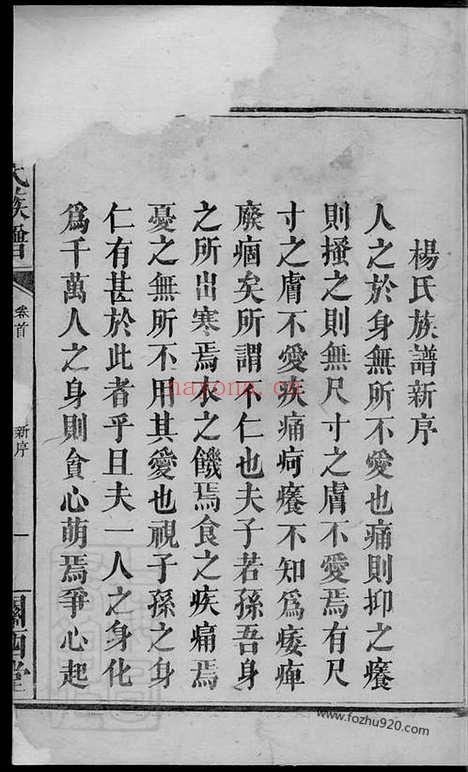 楊氏族譜新序
人之於身無所不愛也痛則抑之癢
則搔之則無尺寸之膚不愛焉有尺
寸之膚不愛疾痛疴癢不知爲痿痺
廢痼矣所謂不仁也夫子若孫吾身
之所出寒焉衣之饑焉食之疾痛焉
憂之無所不用其愛也視子孫之身
仁有甚於此者乎且夫一人之身化
爲千萬人之身則貪心萌焉爭心起
氏族譜
卷首
新序
一
關西堂
www.fozhu920.com